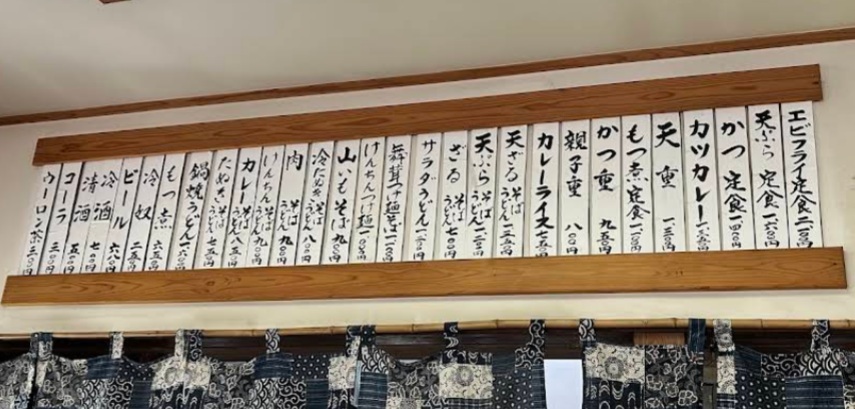 エビフライ定食 二一〇〇円
天ぷら定食 一六〇〇円
かつ定食 一四〇〇円
カツカレー 一三五〇円
天重 一三〇〇円
もつ煮定食 一一〇〇円
かつ重 九五〇円
親子重 八〇〇円
カレーライス 七五〇円
天ざる そば うどん 一三五〇円
天ぷら そば うどん 一二五〇円
ざる そば うどん 七〇〇円
サラダうどん
舞茸つけ麺そば
けんちんつけ麺
山いもそば 九五〇円
冷たぬき そば うどん 八〇〇円
肉 そば うどん 九〇〇円
けんちん そば うどん 九〇〇円
カレー そば うどん 八五〇円
たぬき そば うどん 七五〇円
鍋焼うどん 一三〇〇円
もつ煮 六五〇円
冷奴 二五〇円
ビール 六八〇円
冷酒
清酒 五〇〇円
コーラ 三〇〇円
ウーロン茶 三〇〇円